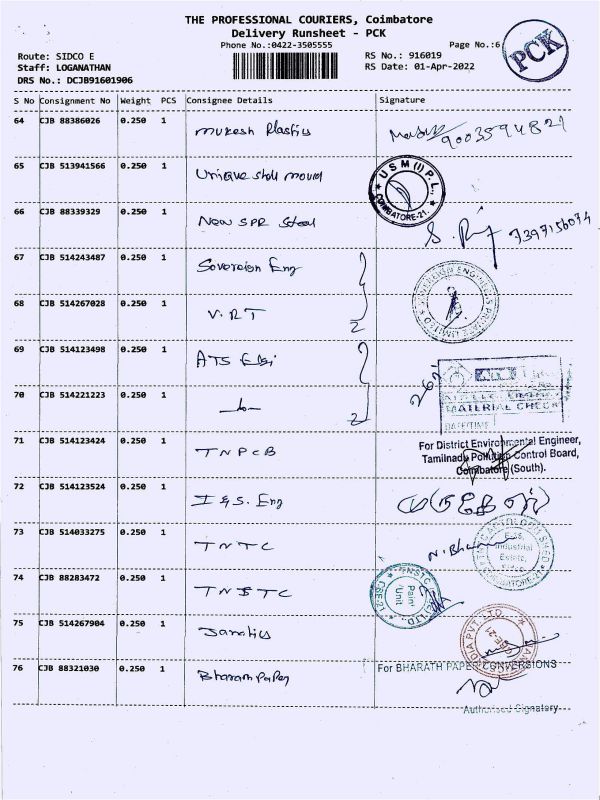 THE PROFESSIONAL COURIERS, Coimbatore
Delivery Runsheet - PCK
Phone No.:0422-3505555
Page No.:6
PCK
Route: SIDCO E
Staff: LOGANATHAN
DRS No.: DCJB91601906
RS No.: 916019
RS Date: 01-Apr-2022
S No Consignment No Weight PCS Consignee Details Signature
64 CJB 88386026 0.250 1 Mukesh Plastics 9003594821
65 CJB 513941566 0.250 1 Unique shell mould
USM (I) P.L.,
COIMBATORE-21.
66 CJB 88339329 0.250 1 New SPR Steel 7397156074
67 CJB 514243487 0.250 1 Sovereign Eng
68 CJB 514267028 0.250 1 V.R.T 2
69 CJB 514123498 0.250 1 ATS Elgi
70 CJB 514221223 0.250 1 2
MATERIAL CHECK
DATE/TIME
71 CJB 514123424 0.250 1 TNPCB
For District Environmental Engineer,
Tamilnadu Pollution Control Board,
Coimbatore (South).
72 CJB 514123524 0.250 1 I&S. Eng
73 CJB 514033275 0.250 1 TNTC
Industrial
Estate,
74 CJB 88283472 0.250 1 TNSTC
Paint
Unit
75 CJB 514267904 0.250 1
76 CJB 88321030 0.250 1 Bharam Paper
For BHARATH PAPER CONVERSIONS
Authorised Signatory